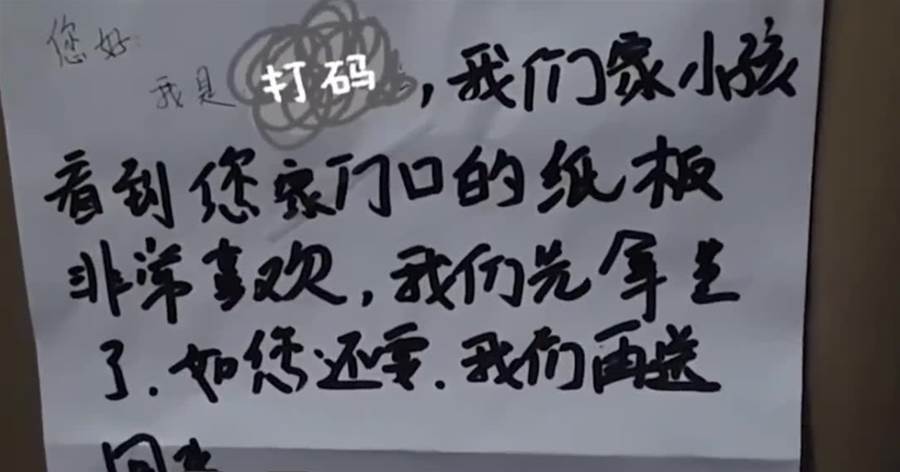 您好
我是打码,我们家小孩
看到您家门口的纸板
非常喜欢,我们先拿走
了.如您还要.我们再送
回来